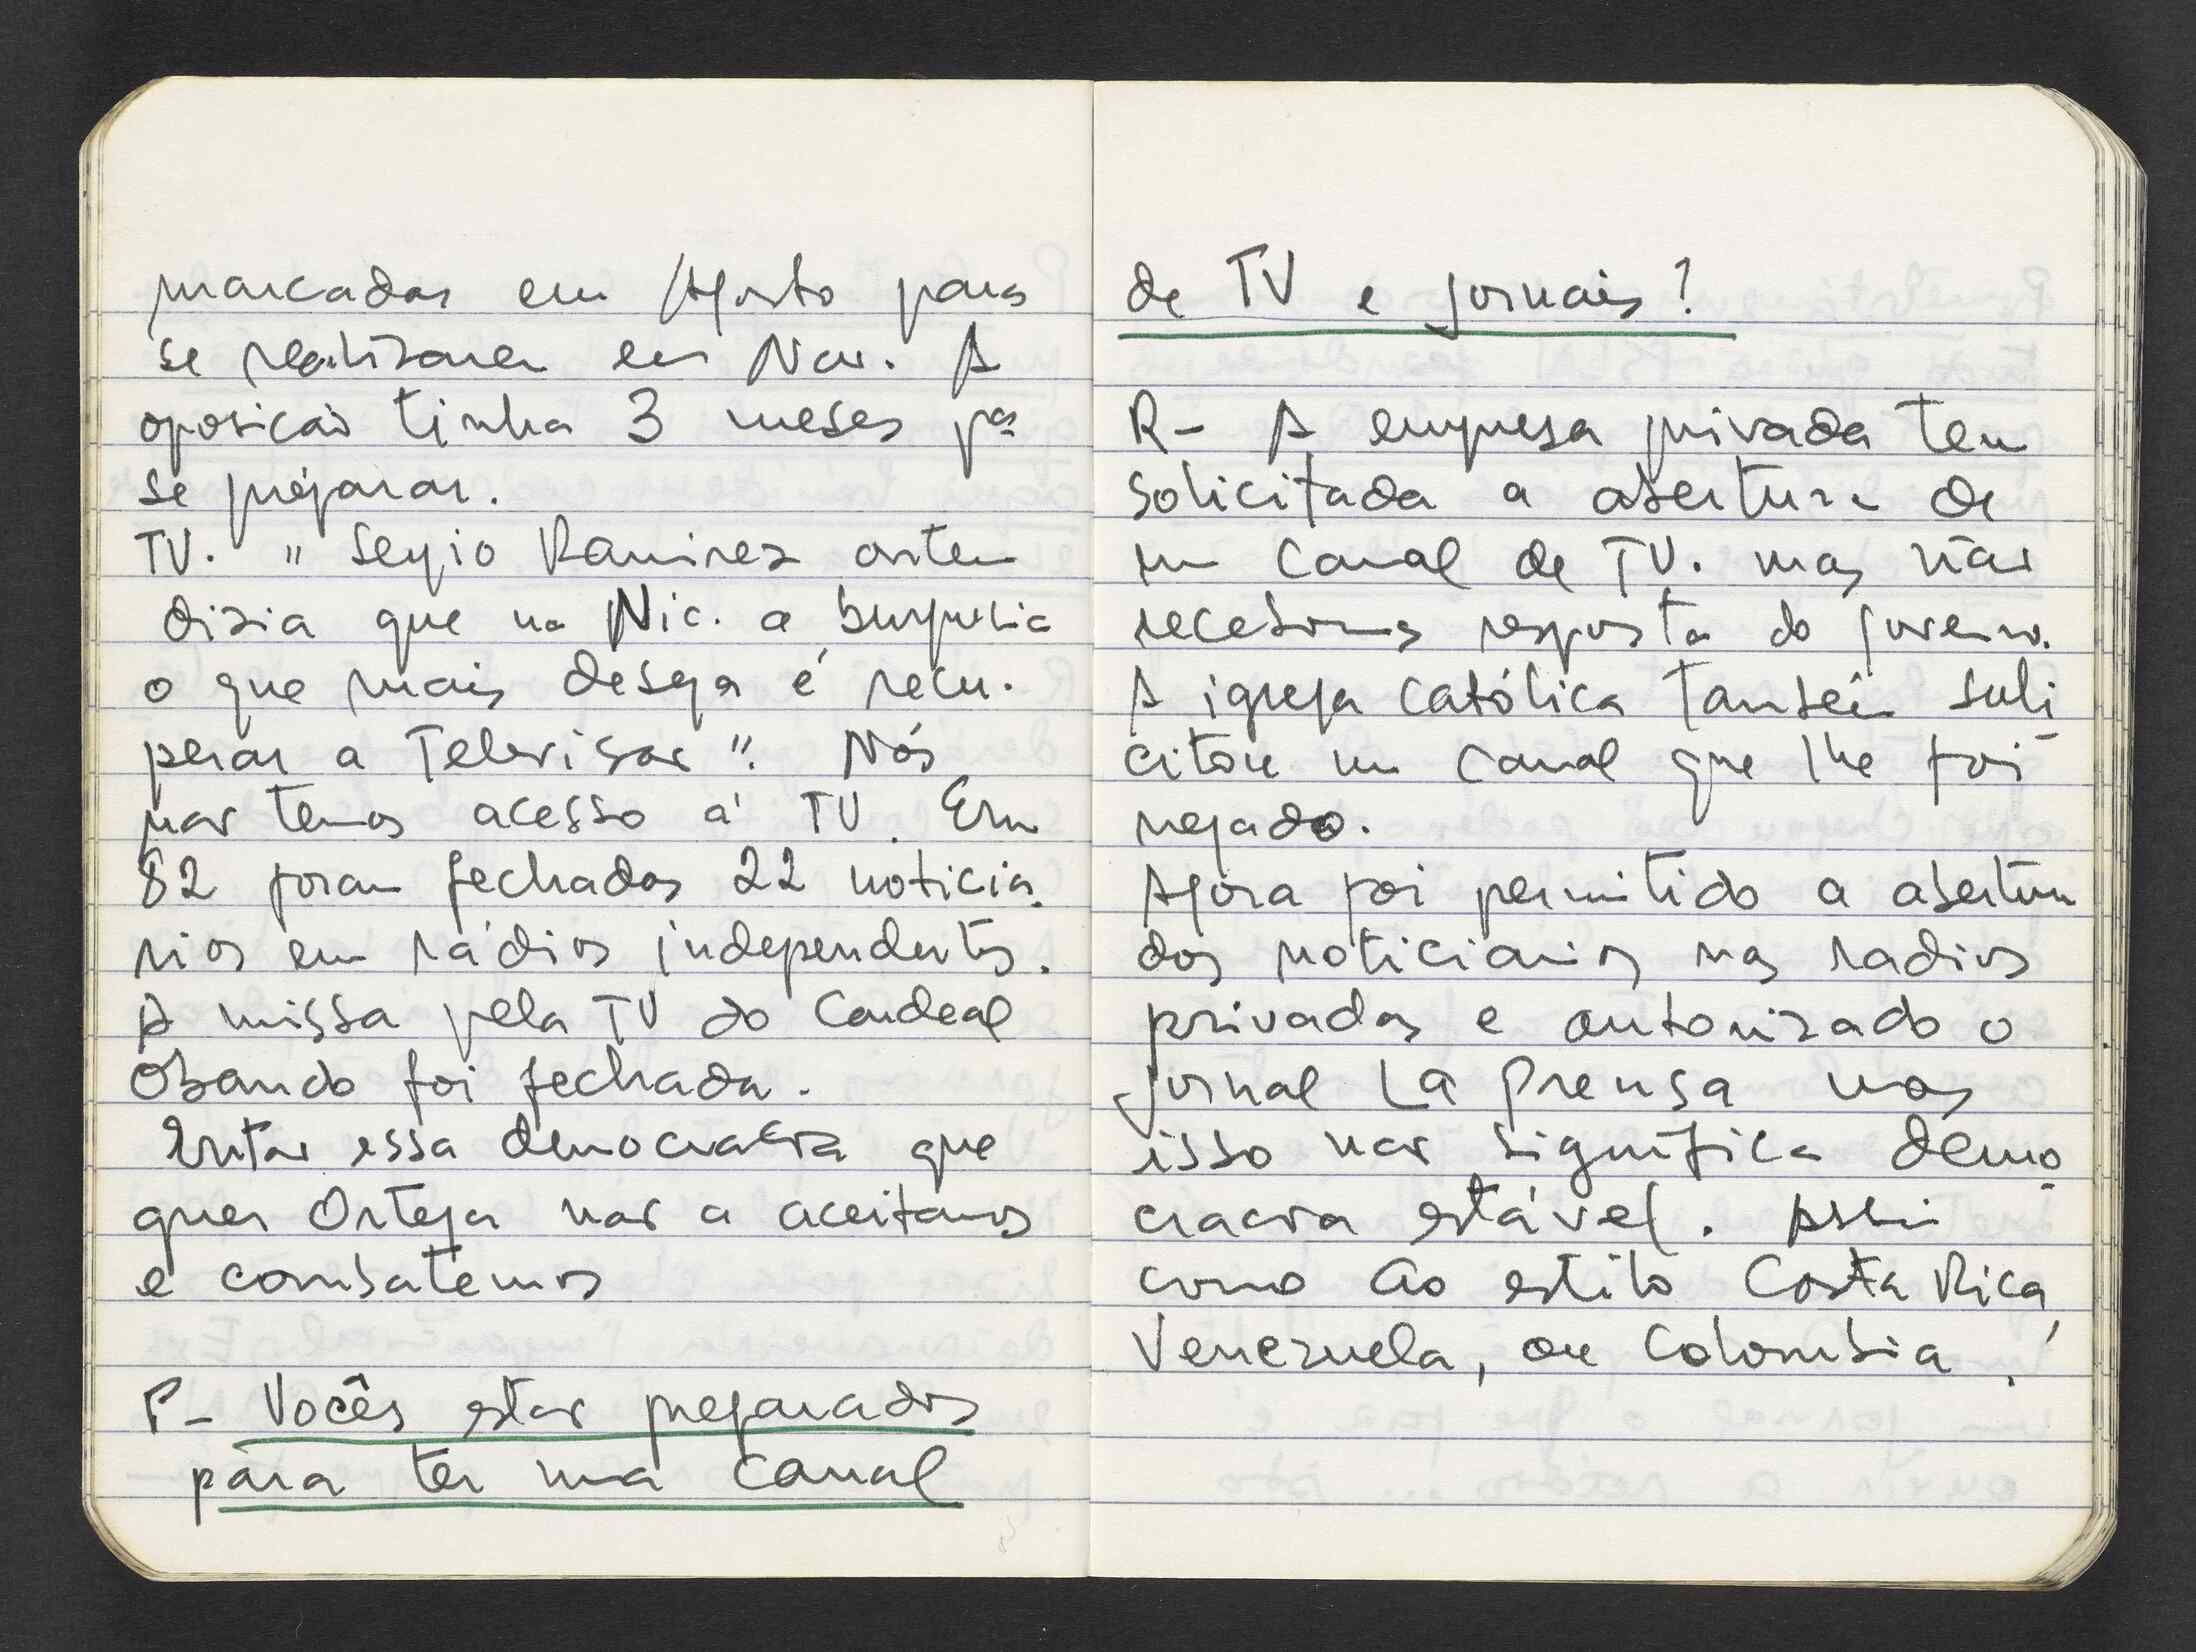 marcadas em Agosto para
se realizarem em Nov. A
oposicão tinha 3 meses pª
se preparar.
TV. " Sergio Ramirez ontem
dizia que na Nic. a burguesia
o que mais deseja é recu-
perar a Televisão". Nós
não temos acesso á TV. Em
82 foram fechados 22 noticia-
rios em rádios independentes.
A missa pela TV do Cardeal
Obando foi fechada.
Então essa democracia que
quer Ortega não a aceitamos
e combatemos
P- Vocês estão preparados
para ter um canal
de TV e jornais?
R- A empresa privada tem
solicitada a abertura de
um canal de TV. mas não
recebemos resposta do governo.
A igreja católica também soli-
citou um canal que lhe foi
negado.
Agora foi permitido a abertura
dos noticiarios nas radios
privadas e autorizado o
jornal La Prensa mas
isso não significa demo-
cracia estável. Assim
como ao estilo Costa Rica,
Venezuela, ou Colombia.